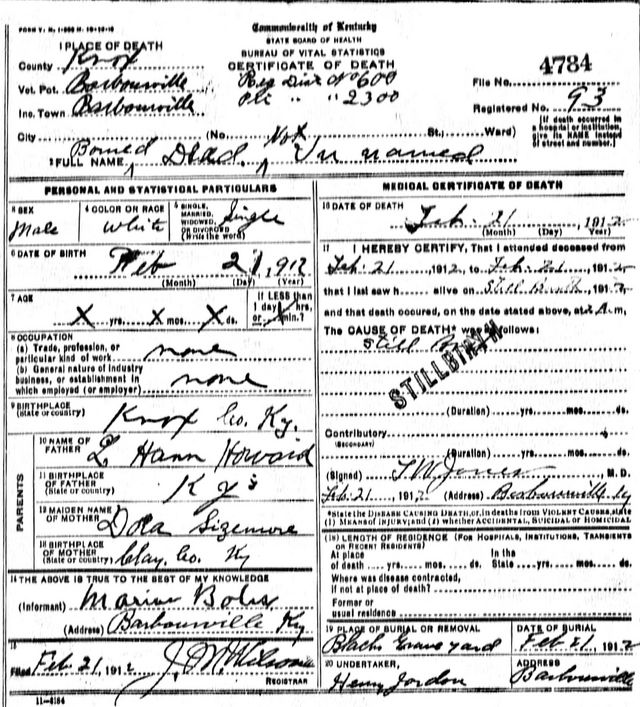 FORM V. S. 1-
Commonwealth of Kentucky
STATE BOARD OF HEALTH
BUREAU OF VITAL STATISTICS
CERTIFICATE OF DEATH
1 PLACE OF DEATH
County Knox
Vot. Pct. Barbourville
Inc. Town Barbourville
Reg Dist No 600
" " 2300
4784
File No.
Registered No. 93
City (No. St.; Ward)
(If death occurred in a hospital or institution, give its NAME instead of street and number.)
2 FULL NAME Borned Dead. Un named
PERSONAL AND STATISTICAL PARTICULARS
3 SEX Male
4 COLOR OR RACE White
5 SINGLE, MARRIED, WIDOWED, OR DIVORCED (Write the word) Single
6 DATE OF BIRTH Feb 21, 912
(Month) (Day) (Year)
7 AGE X yrs. X mos. X ds.
If LESS than 1 day hrs. or min.?
8 OCCUPATION
(a) Trade, profession, or particular kind of work none
(b) General nature of industry business, or establishment in which employed (or employer) none
9 BIRTHPLACE (State or country) Knox Co. Ky.
PARENTS
10 NAME OF FATHER L Hann Howard
11 BIRTHPLACE OF FATHER (State or country) Ky
12 MAIDEN NAME OF MOTHER Dora Sizemore
13 BIRTHPLACE OF MOTHER (State or country) Clay. Co. Ky
14 THE ABOVE IS TRUE TO THE BEST OF MY KNOWLEDGE
(Informant) Marion Boles
(Address) Barbourville Ky
15
Filed Feb 21, 1912 J. M. Wilson
REGISTRAR
11-6184
MEDICAL CERTIFICATE OF DEATH
16 DATE OF DEATH Feb. 21 1912
(Month) (Day) (Year)
17 I HEREBY CERTIFY, That I attended deceased from
Feb. 21 1912, to Feb. 21, 1912
that I last saw h alive on Still Birth, 1912
and that death occured, on the date stated above, at m,
The CAUSE OF DEATH* was as follows:
Still Birth
STILLBIRTH
(Duration) yrs. mos. ds.
Contributory
(SECONDARY)
(Duration) yrs. mos. ds.
(Signed) T W Jones, M. D.
Feb. 21, 1912 (Address) Barbourville Ky
*State the DISEASE CAUSING DEATH, or, in deaths from VIOLENT CAUSES, state
(1) MEANS of INJURY; and (2) whether ACCIDENTAL, SUICIDAL or HOMICIDAL
(18) LENGTH OF RESIDENCE (FOR HOSPITALS, INSTITUTIONS, TRANSIENTS
OR RECENT RESIDENTS)
At place of death yrs. mos. ds. In the State yrs. mos. ds.
Where was disease contracted,
if not at place of death?
Former or
usual residence
19 PLACE OF BURIAL OR REMOVAL
Blacks Graveyard
DATE OF BURIAL
Feb 21, 1912
20 UNDERTAKER,
Henry Jordon
ADDRESS
Barbourville